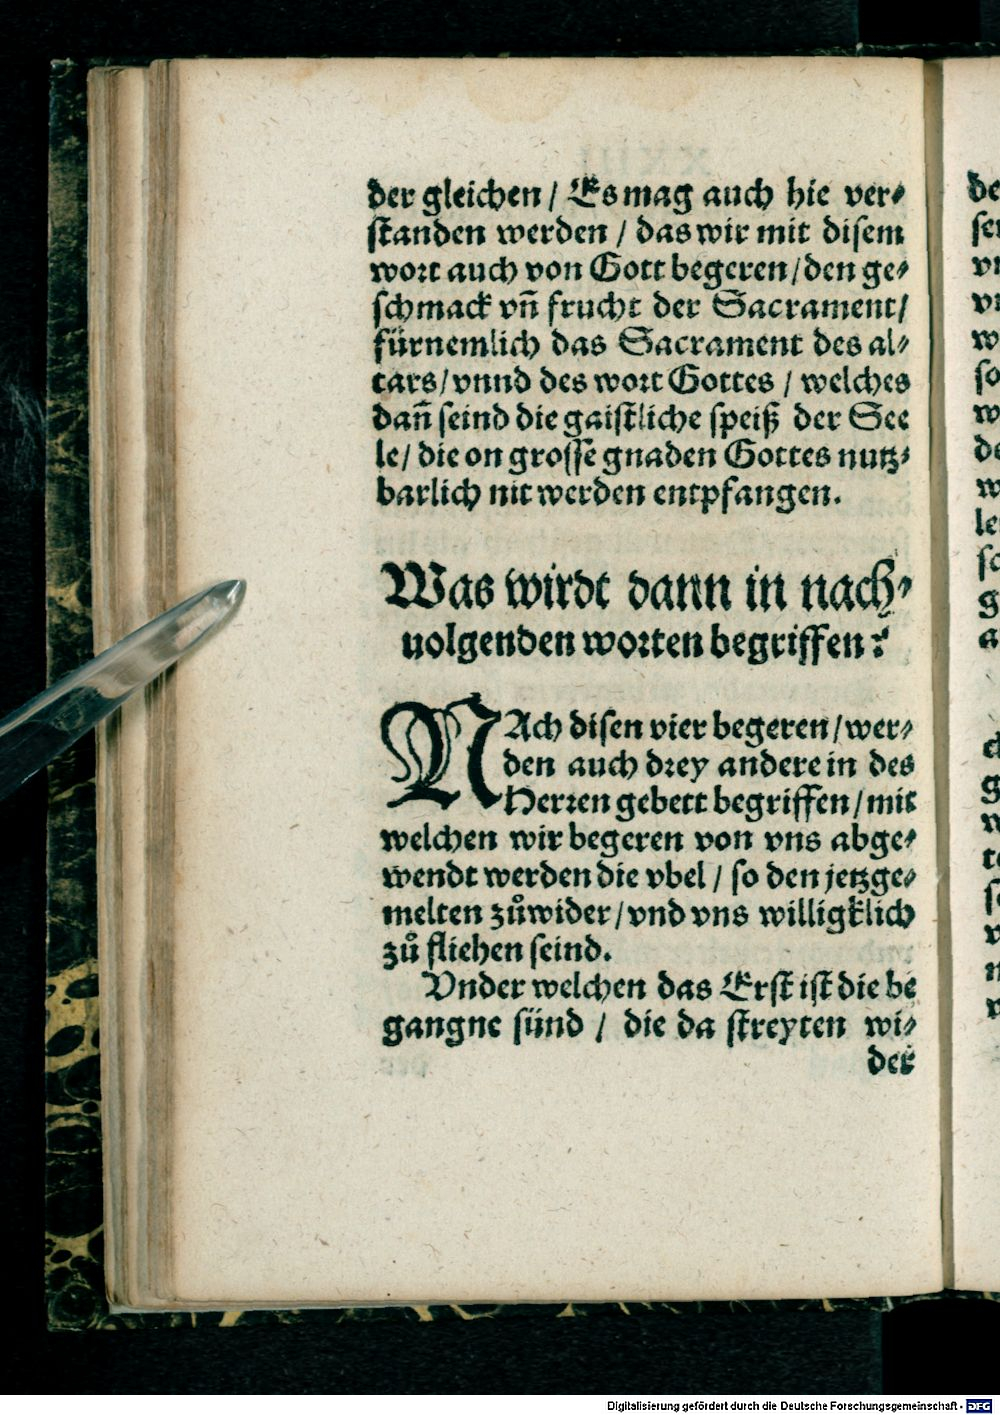 der gleichen / Es mag auch hie ver⸗
standen werden / das wir mit disem
wort auch von Gott begeren / den ge⸗
schmack vñ frucht der Sacrament /
fürnemlich das Sacrament des al⸗
tars / vnnd des wort Gottes / welches
dañ seind die gaistliche speiß der See
le / die on grosse gnaden Gottes nutz⸗
barlich nit werden entpfangen.
Was wirdt dann in nach⸗
uolgenden worten begriffen?
NAch disen vier begeren / wer⸗
den auch drey andere in des
Herren gebett begriffen / mit
welchen wir begeren von vns abge⸗
wendt werden die vbel / so den jetzge⸗
melten zůwider / vnd vns willigklich
zů fliehen seind.
Vnder welchen das Erst ist die be
gangne sünd / die da streyten wi⸗
der
de
vn
w
so
w
de
w
le
g
a
g
w
v
Digitalisierung gefördert durch die Deutsche Forschungsgemeinschaft - DFG